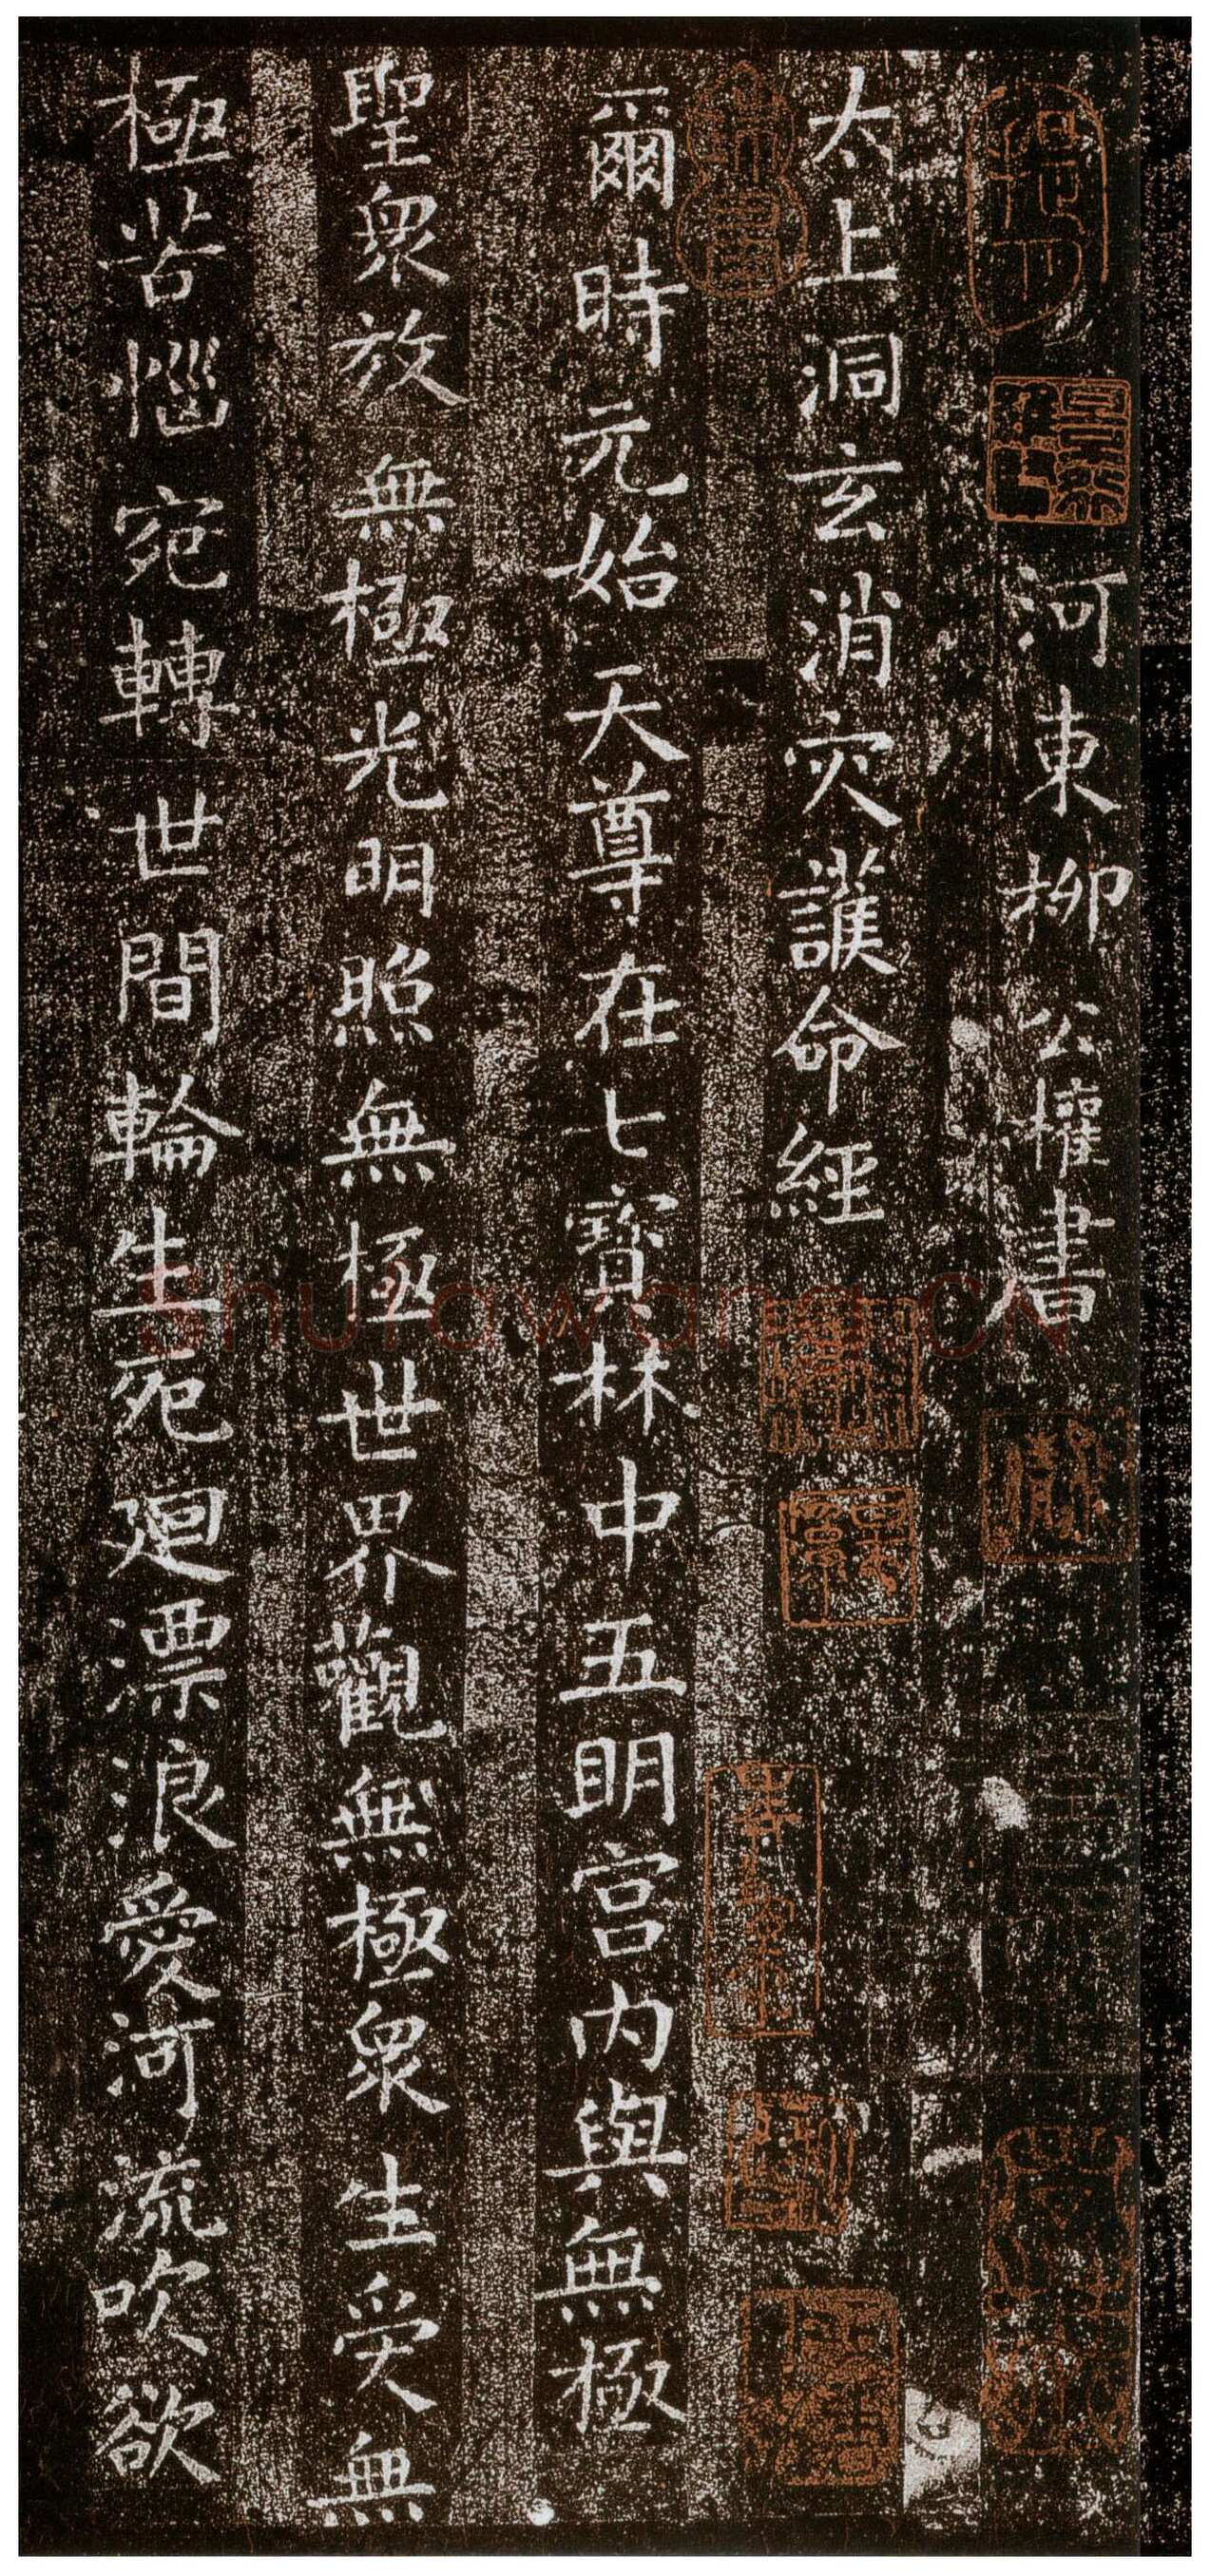 河東柳公權書
太上洞玄消灾護命經
爾時元始天尊在七寶林中五明宮内與無極
聖衆放無極光明照無極世界觀無極衆生受無
極苦惱宛轉世間輪生死廻漂浪愛河流吹欲
Shufawang.CN